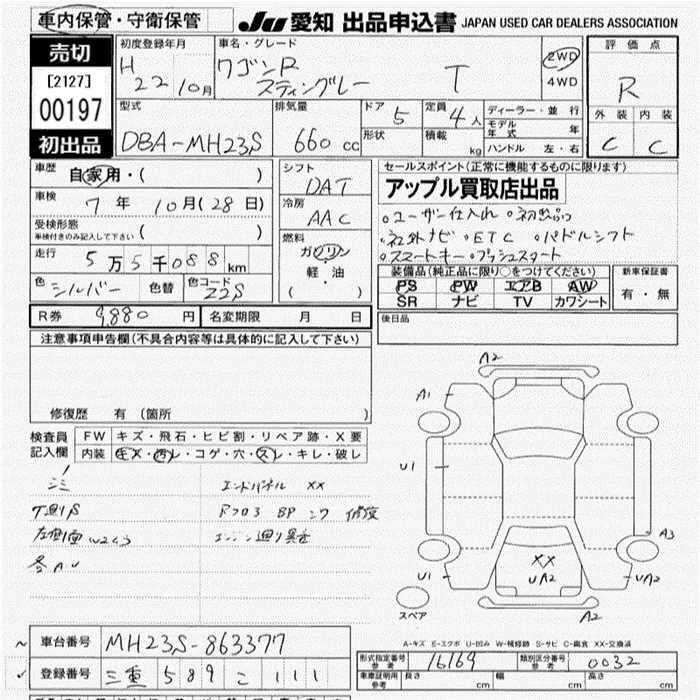 車内保管・守衛保管
JU 愛知 出品申込書 JAPAN USED CAR DEALERS ASSOCIATION
売切
[2127]
00197
初出品
初度登録年月
H 22 10月
車名・グレード
ワゴンR スティングレー T
2WD
4WD
評価点
R
外装 内装
C C
型式
DBA-MH23S
排気量
660 cc
ドア 5
形状
定員 4 人
積載 kg
ディーラー・並行
モデル年式 年
ハンドル 左・右
車歴
自家用・( )
車検
7年 10月(28日)
受検形態
車検付きのみ記入して下さい ( )
走行
5万5千088 km
色 シルバー 色替 色コード Z2S
シフト
DAT
冷房
AAC
燃料
ガソリン
軽・油
( )
セールスポイント(正常に機能するものに限ります)
アップル買取店出品
。ユーザー仕入れ 。初出品
。社外ナビ 。ETC 。パドルシフト
。スマートキー 。プッシュスタート
装備品(純正品に限り○をつけてください)
PS PW エアB AW
SR ナビ TV カワシート
新車保証書
有・無
R券 9,880 円 名変期限 月 日
後日品
注意事項申告欄(不具合内容等は具体的に記入して下さい)
修復歴 有(箇所 )
検査員
記入欄
FW キズ・飛石・ヒビ割・リペア跡・X要
内装 キズ・汚レ・コゲ・穴・スレ・キレ・破レ
エンドパネル XX
Rフロア BP 修復
各AU
A2
A1
U1
A3
U1
XX
UA2
UA2
A2
スペア
A-キズ E-エクボ U-凹み W-補修跡 S-サビ C-腐食 XX-交換済
車台番号 MH23S-863377
登録番号 三重 589 こ 111
形式指定番号
参考
16169
類別区分番号
参考
0032
車庫証明用
参考
長さ cm 幅 cm 高さ cm